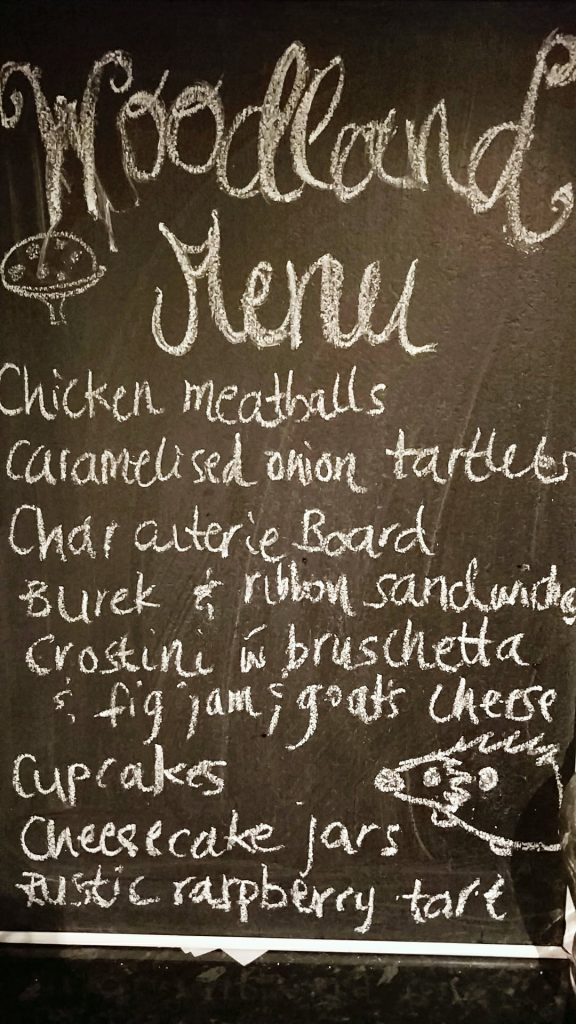 Woodland
Menu
Chicken meatballs
Caramelised onion tartlets
Charcuterie Board
Burek & ribbon sandwiches
Crostini w bruschetta
& fig jam & goats cheese
Cupcakes
Cheesecake jars
Rustic raspberry tart